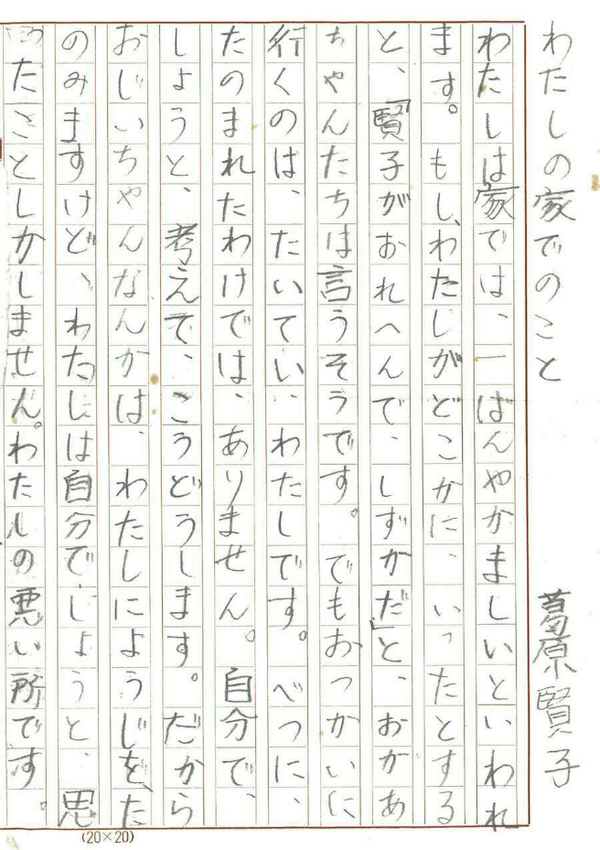 わたしの家でのこと　葛原賢子
わたしは家では、一ばんやかましいといわれ
ます。もし、わたしがどこかに、いったとする
と、「賢子がおれへんで、しずかだ」と、おかあ
ちゃんたちは言うそうです。でもおつかいに
行くのは、たいてい、わたしです。べつに、
たのまれたわけでは、ありません。自分で、
しようと、考えて、こうどうします。だから
おじいちゃんなんかは、わたしにようじを、た
のみますけど、わたしは自分でしようと、思
ったことしかしません。わたしの悪い所です。
(20×20)